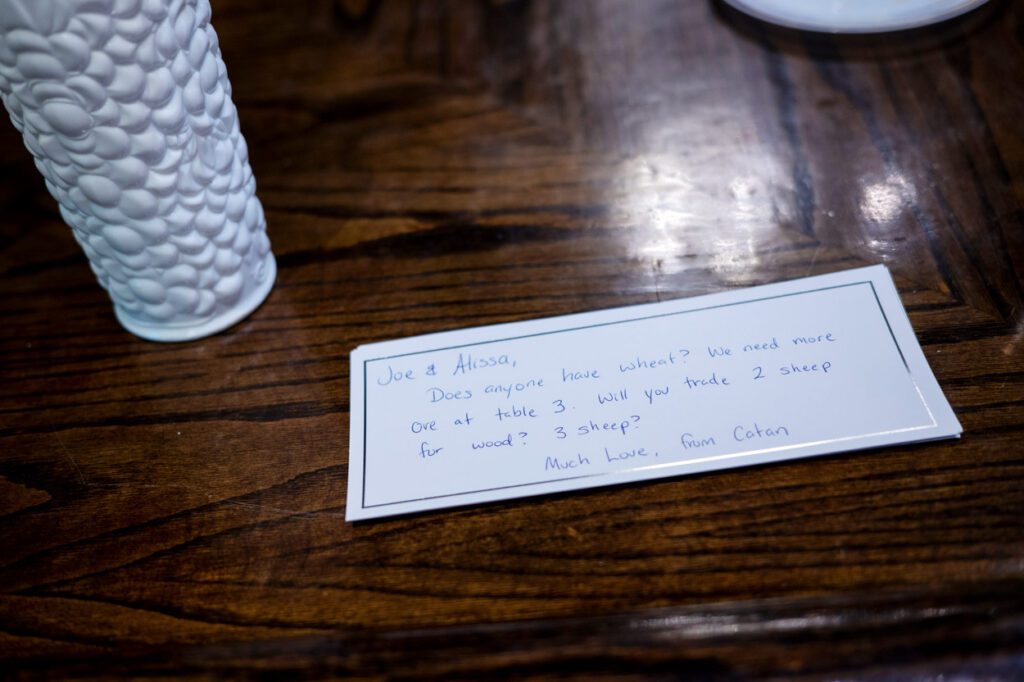 Joe & Alissa,
Does anyone have wheat? We need more
ore at table 3. Will you trade 2 sheep
for wood? 3 sheep?
Much Love, from Catan